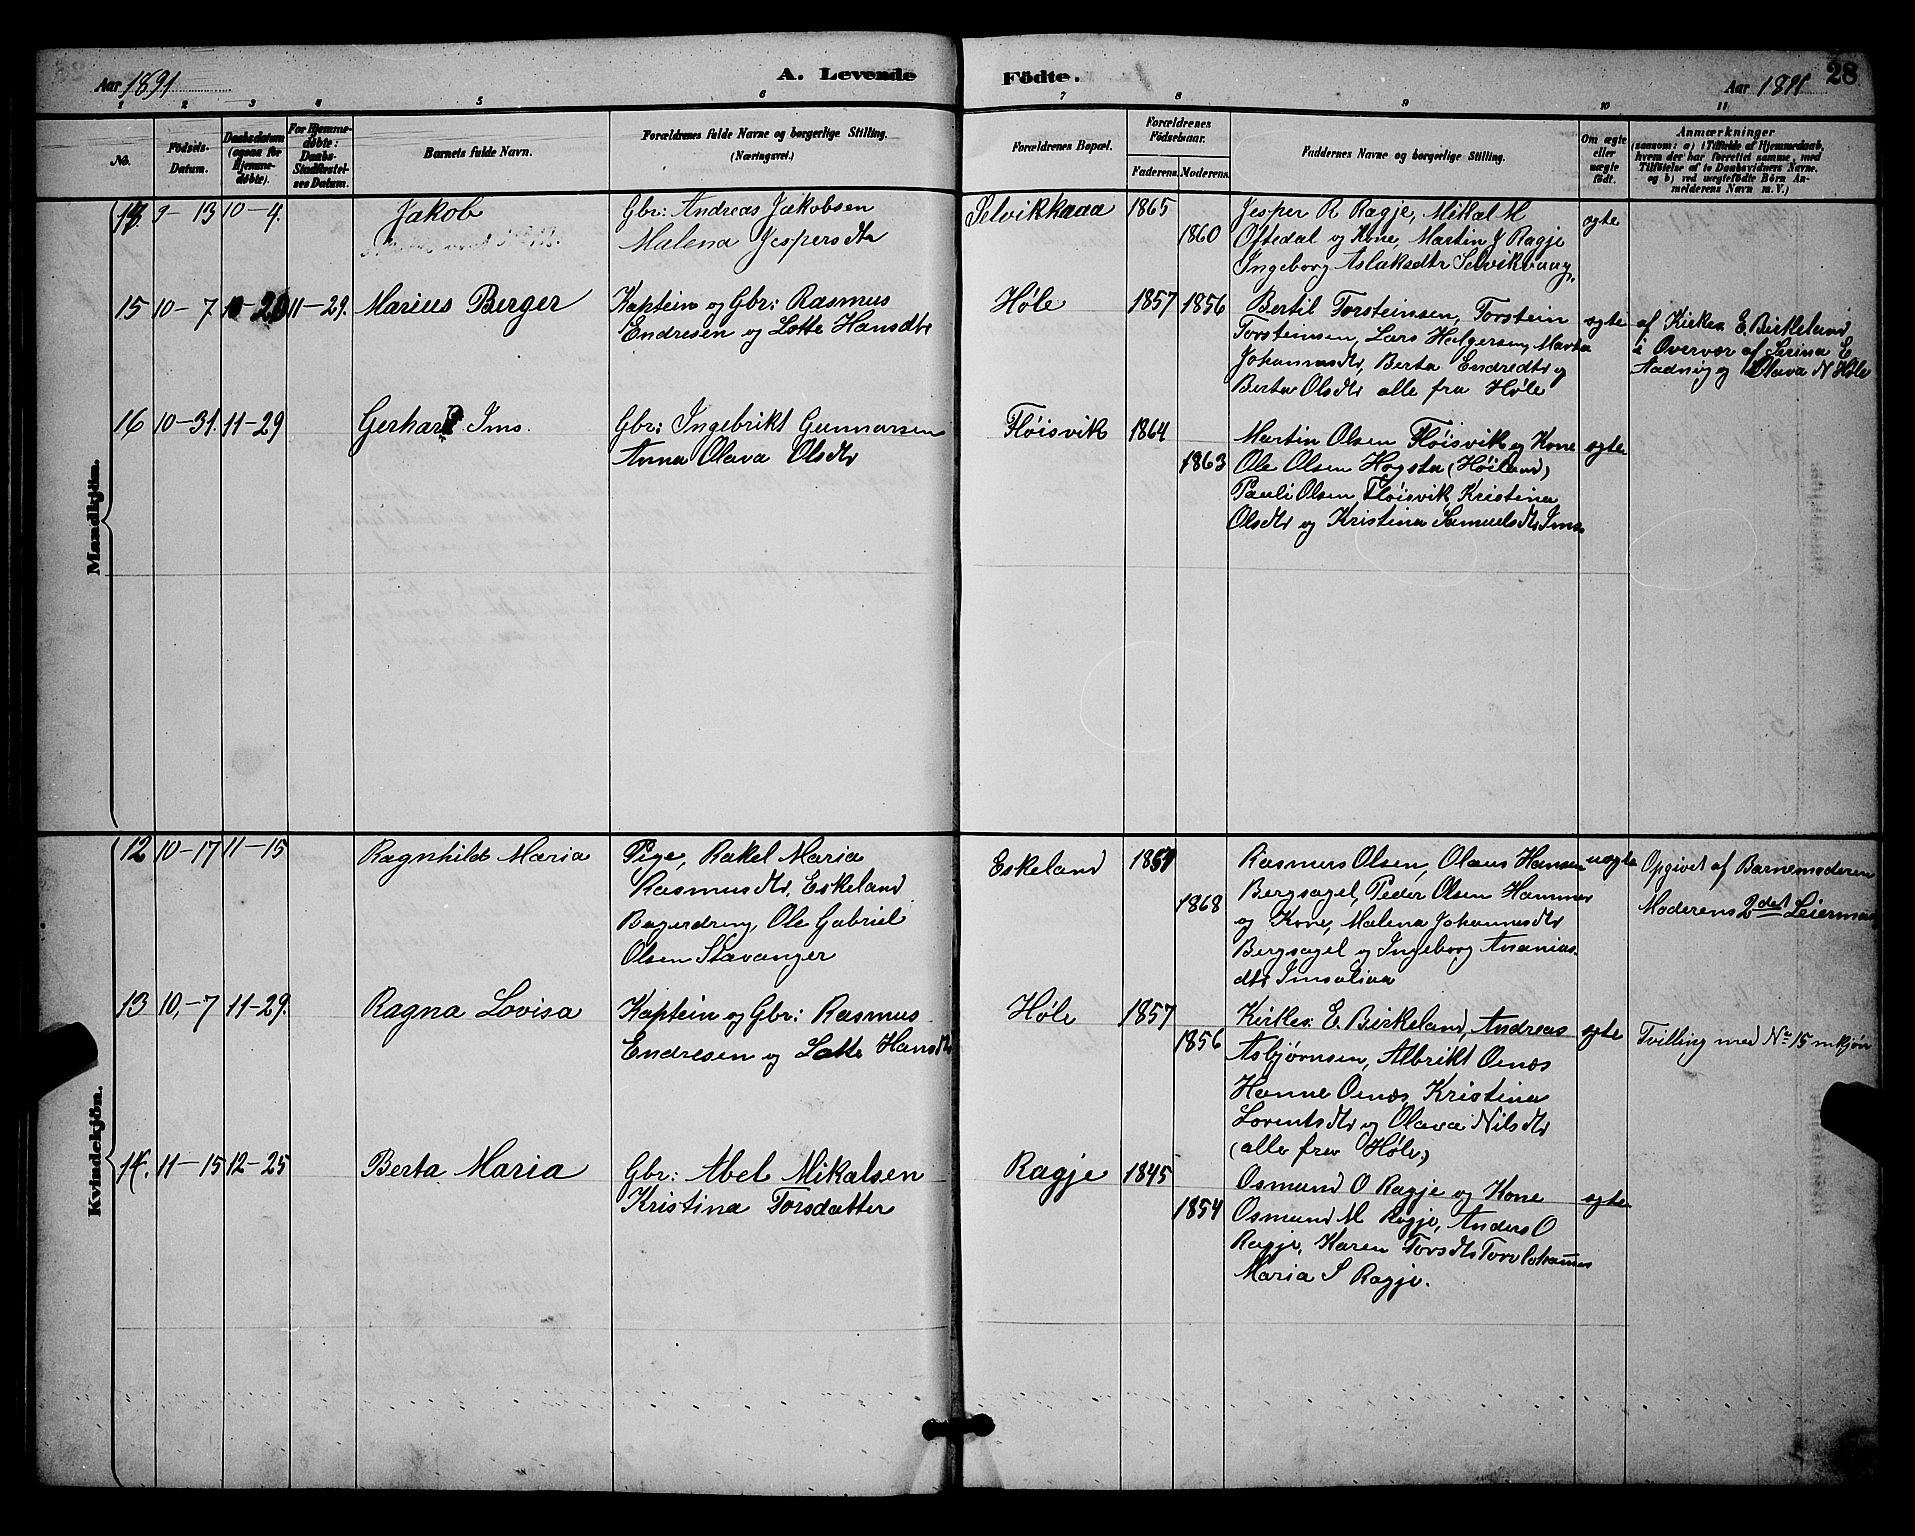 Aar 1891
A. Levende
Födte.
Aar 1891
28
1 2 3 4 5 6 7 8 9 10 11
No.
Födsels-
Datum.
Daabsdatum
(ogsaa for
Hjemme-
døbte).
For Hjemme-
døbte:
Daabs-
Stadfæstel-
ses Datum.
Barnets fulde Navn.
Forældrenes fulde Navne og borgerlige Stilling.
(Næringsvei.)
Forældrenes Bopæl.
Forældrenes
Fødselsaar.
Faderens. Moderens.
Faddernes Navne og borgerlige Stilling.
Om ægte
eller
uægte
født.
Anmærkninger
(saasom: a) i Tilfælde af Hjemmedaab,
hvem der har forrettet samme, med
Tilföielse af to Daabsvidners Navne.
og b) ved uægtefödte Börn An-
melderens Navn m. V.)
Mandkjön.
9-13 10-4. Jakob
Gbr: Andreas Jakobsen
Malena Jespersdtr
1865
1860
Jesper R Ragje, Mikal M
Oftedal og Kone, Martin J Ragje
Ingeborg Aslaksdtr
ægte
15 10-7 11-29. Marius Berger
Kaptein og Gbr: Rasmus
Endresen og Lotte Hansdtr
Høle 1857 1856
Bertil Torsteinsen, Torstein
Torsteinsen, Lars Helgersen, Marta
Johannesdtr, Berta Endredtr og
Berta Olsdtr alle fra Høle
ægte
af Kirkes. E. Birkeland
i Overvær af Serina E
Aadnøy og Olava N Høle
16 10-31. 11-29 Gerhard Ims.
Gbr: Ingebrikt Gunnarsen
Anna Olava Olsdtr
Fløisvik 1864
1863
Martin Olsen Fløisvik og Kone
Ole Olsen Hogsta (Høiland)
Pauli Olsen Fløisvik, Kristina
Olsdtr og Kristina Samuelsdtr Ims
ægte
Kvindekjön.
12 10-17 11-15 Ragnhild Maria
Pige, Rakel Maria
Rasmusdtr, Eskeland
Ole Gabriel
Olsen Stavanger
Eskeland
1868
Rasmus Olsen, Olaus Hansen
Bergsagel, Peder Olsen Hammer
og Kone, Malena Johannesdtr
Bergsagel og Ingeborg Ananias-
dtr Imsalian
uægte
Opgivet af Barnemoderen
Moderens 2det Leiermaal
13 10-7 11-29. Ragna Lovisa
Kaptein og Gbr: Rasmus
Endresen og Lotte Hansdtr
Høle 1857
1856
Kirkes: E. Birkeland, Andreas
Asbjørnsen, Albrikt Oenæs
Hanne Oenæs, Kristina
Lorentsdtr og Olava Nilsdtr
(alle fra Høle.)
ægte
Tvilling med No 15 mkjøn
14. 11-15 12-25 Berta Maria
Gbr: Abel Mikalsen
Kristina Torsdatter
Ragje 1845
1854
Osmund O Ragje og Kone
Osmund M Ragje, Anders O
Ragje, Karen Torsdtr
Maria S Ragje.
ægte